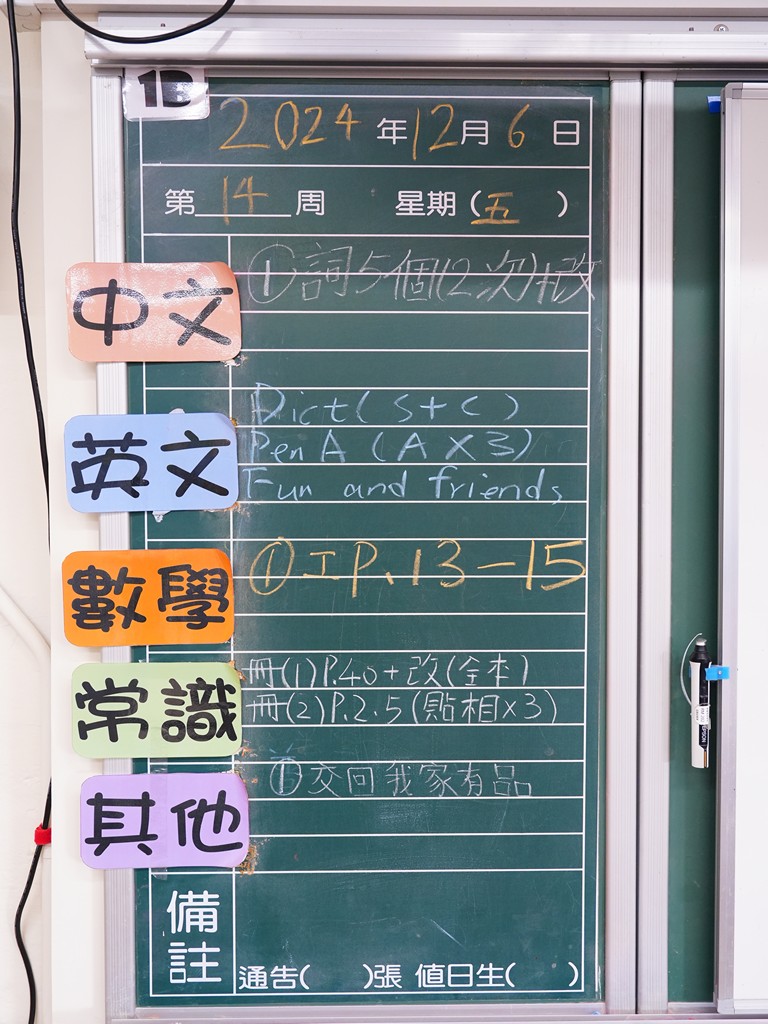 1D
2024年12月6日
第14周 星期(五)
中文
①詞5個(2次)+改
英文
Dict(S+C)
Pen A (A X 3)
Fun and friends
數學
①工P.13-15
常識
冊(1)P.40+改(全本)
冊(2)P.2.5(貼相×3)
其他
①交回我家有品
備註
通告( )張 值日生( )
EPSON